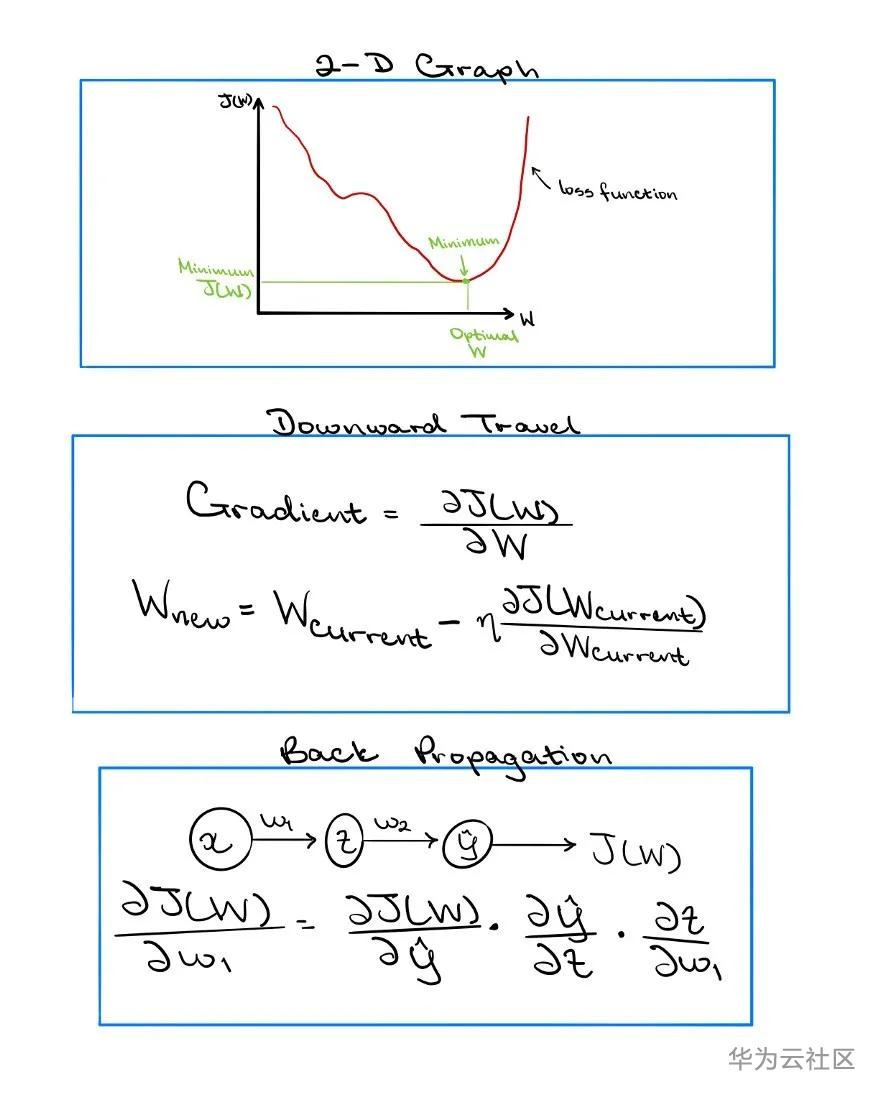 2-D Graph
J(W)
loss function
Minimum
Minimum
J(W)
W
Optimal
W
Downward Travel
Gradient = ∂J(W) / ∂W
Wnew = Wcurrent - η ∂J(Wcurrent) / ∂Wcurrent
Back Propagation
x w₁ z w₂ ŷ J(W)
∂J(W) / ∂w₁ = ∂J(W) / ∂ŷ · ∂ŷ / ∂z · ∂z / ∂w₁
华为云社区